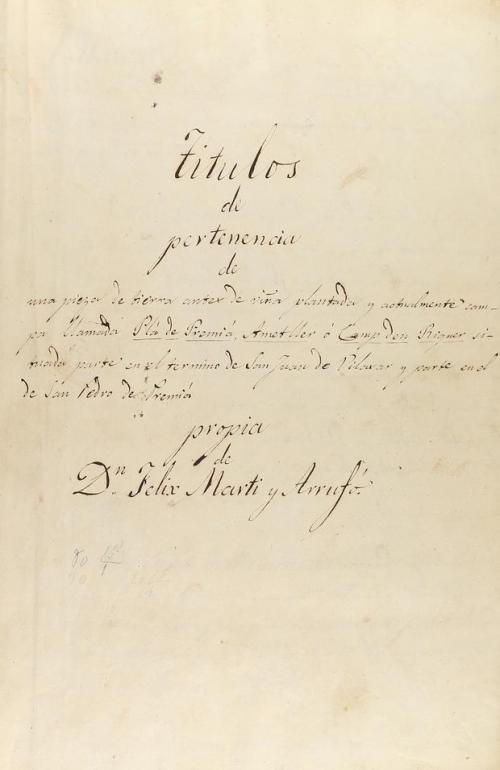 Titulos
de
pertenencia
de
una pieza de tierra antes de viña plantada y actualmente cam-
po llamada Plá de Premiá, Ametller ó Camp den Riquer si-
tuada parte en el termino de San Juan de Vilasar y parte en el
de San Pedro de Premiá
propia
de
Dn. Felix Marti y Arrufó.
80